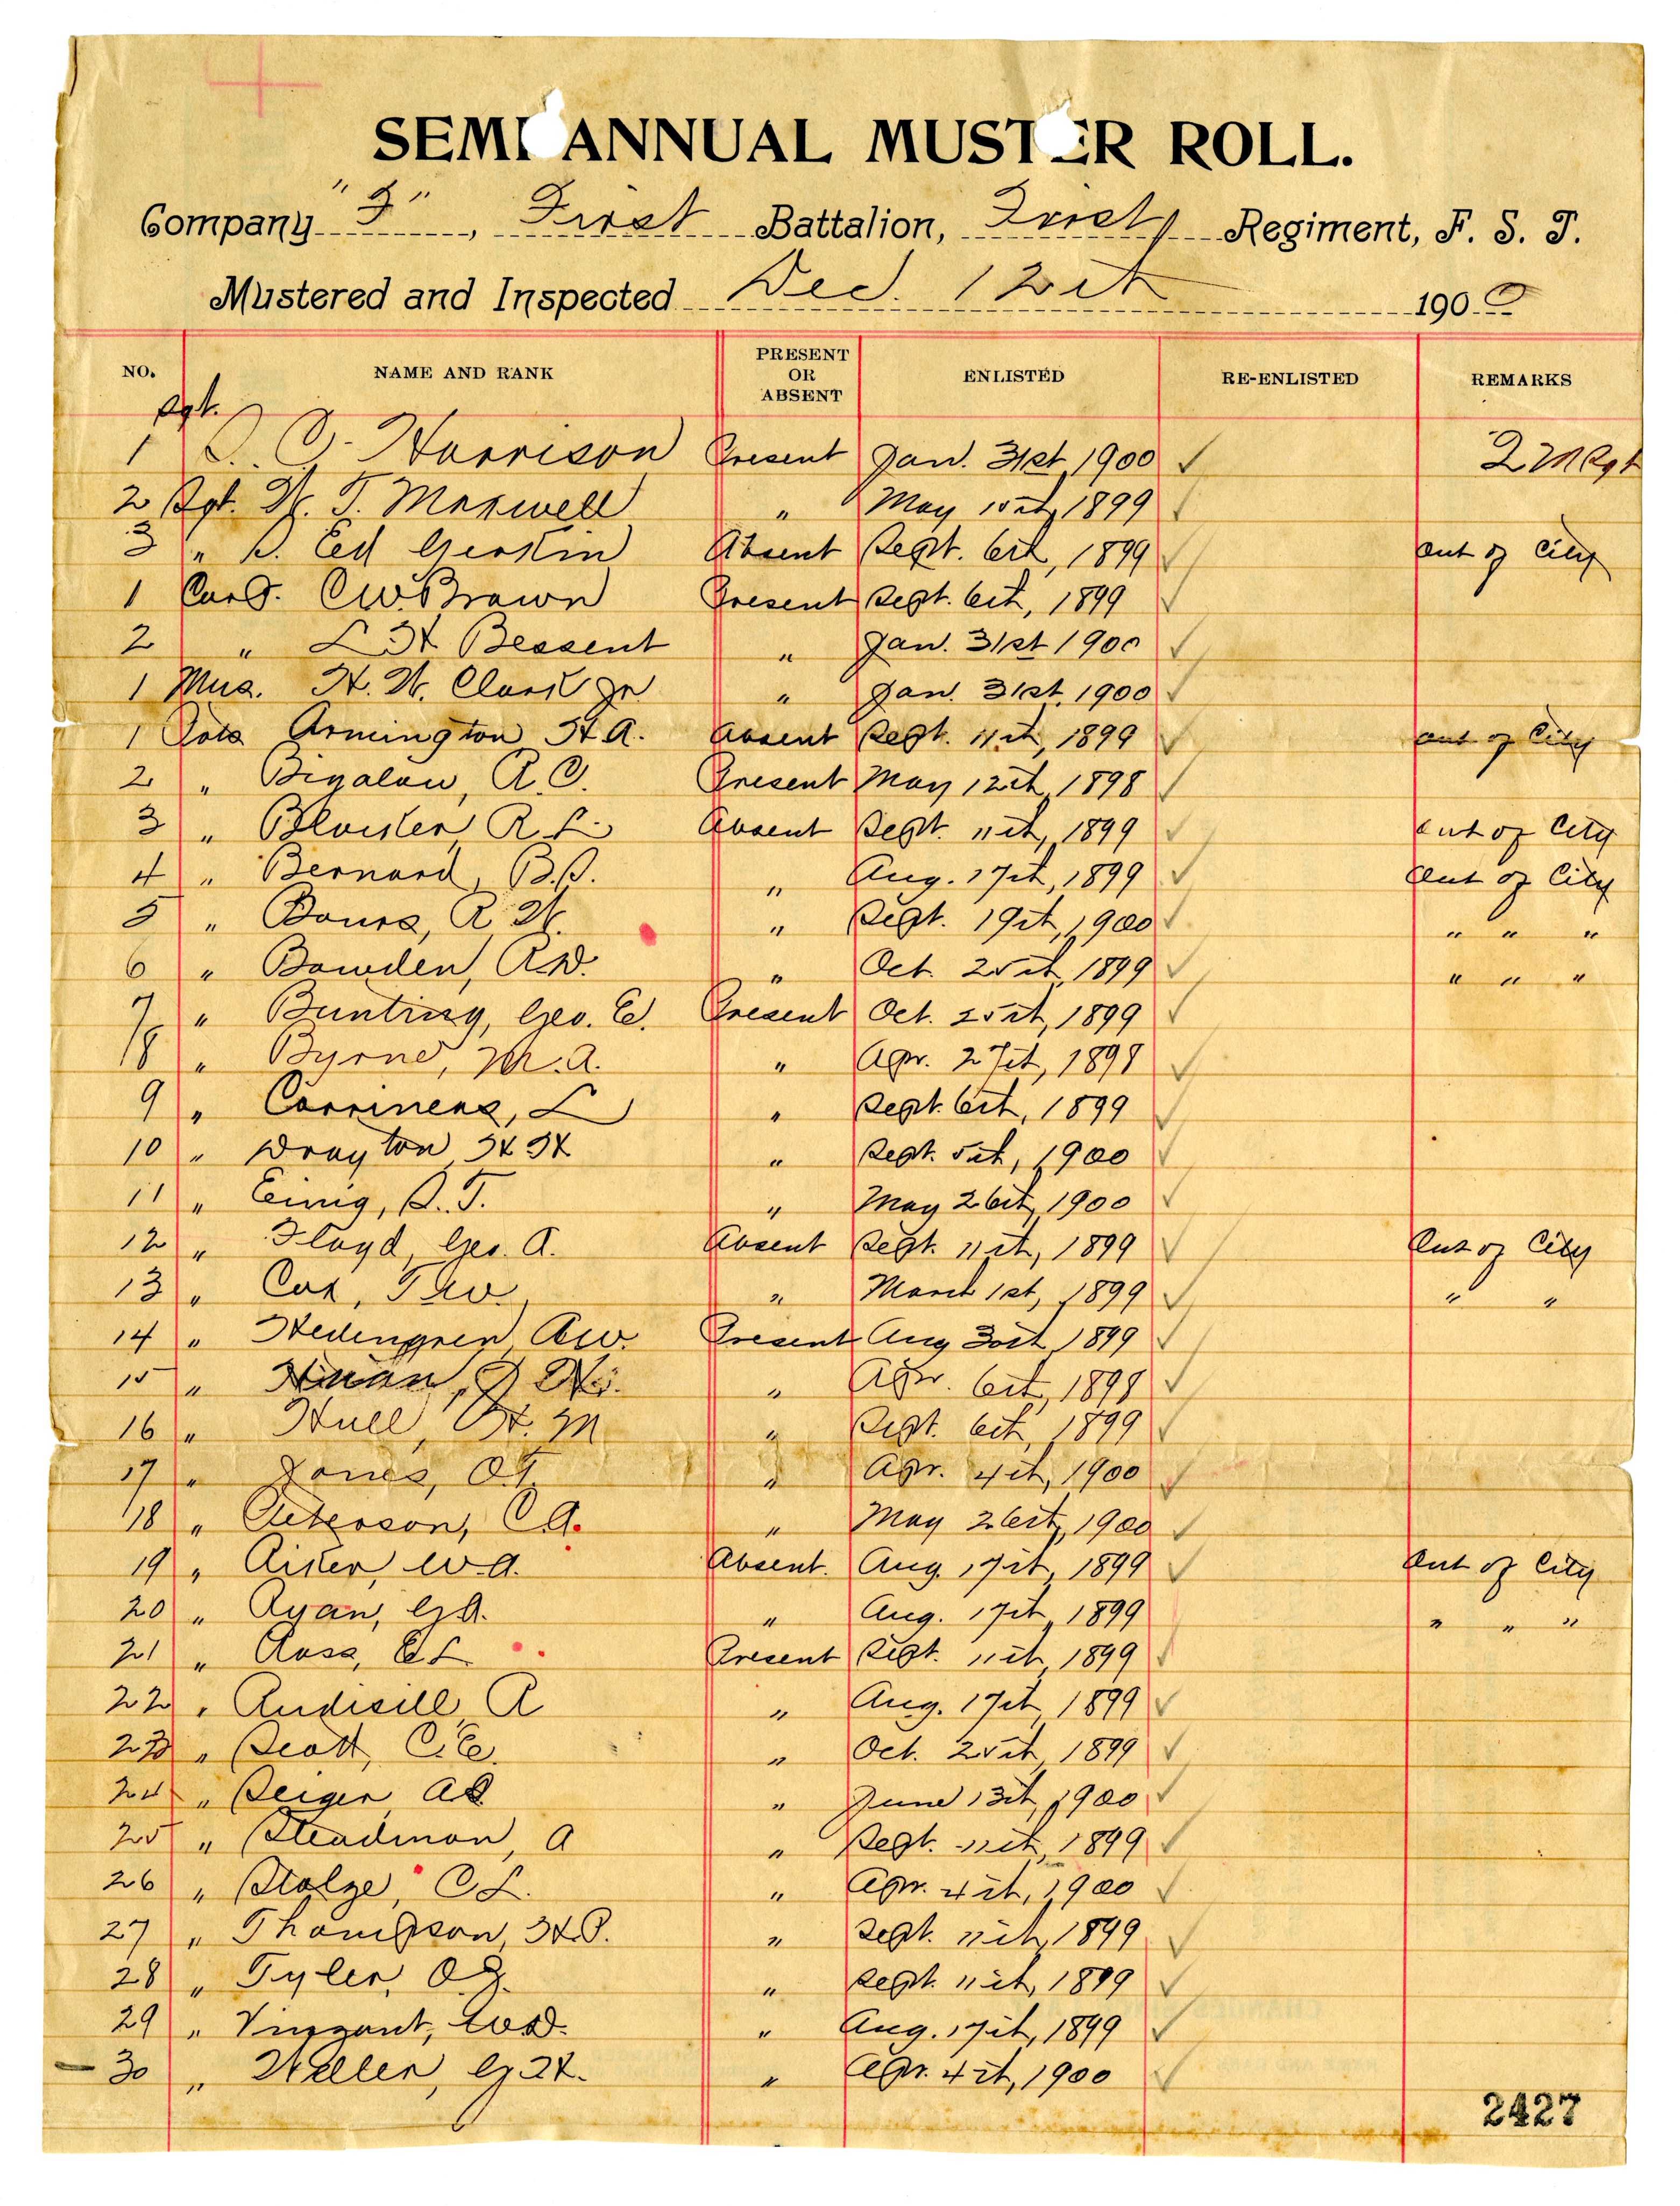 SEMI ANNUAL MUSTER ROLL.
Company "F", First Battalion, First Regiment, F. S. T.
Mustered and Inspected Dec. 12th 1900
NO. NAME AND RANK PRESENT OR ABSENT ENLISTED RE-ENLISTED REMARKS
Sgt.
1 C. Harrison Present Jan. 31st 1900 ✓ 2 M Sgt
2 Sgt. W. T. Maxwell " May 10th, 1899 ✓
3 " S. Ed Gerkin Absent Sept. 6th, 1899 ✓ Out of City
1 Corp. C.W. Brown Present Sept. 6th, 1899 ✓
2 " L H Bessent " Jan. 31st 1900 ✓
1 Mus. H. W. Clark Jr " Jan. 31st, 1900 ✓
1 Pvts Armington H A. Absent Sept. 11th, 1899 ✓ out of City
2 " Bigalow, R. C. Present May 12th, 1898 ✓
3 " R L. Absent Sept. 11th, 1899 ✓ out of City
4 " Bernard, B.S. " Aug. 17th, 1899 ✓ Out of City
5 " Bours, R W. " Sept. 19th, 1900 ✓ " " "
6 " Bowden, R.D. " Oct. 25th, 1899 ✓ " " "
7 " Bunting, Geo. E. Present Oct. 25th, 1899 ✓
8 " Byrne, M. A. " Apr. 27th, 1898 ✓
9 " L " Sept. 6th, 1899 ✓
10 " Drayton H H " Sept. 5th, 1900 ✓
11 " Einig, S. T. " May 26th, 1900 ✓
12 " Floyd, Geo. A. Absent Sept. 11th, 1899 ✓ Out of City
13 " Cox, T W. " March 1st, 1899 ✓ " "
14 " Hedengren A W. Present Aug 30th, 1899 ✓
15 " " Apr. 6th, 1898 ✓
16 " Hull, H. M " Sept. 6th, 1899 ✓
17 " Jones, O.T. " Apr. 4th, 1900 ✓
18 " Peterson, C A. " May 26th, 1900 ✓
19 " W. A. Absent. Aug. 17th, 1899 ✓ Out of City
20 " Ryan, G A. " Aug. 17th, 1899 " " "
21 " Ross, E L Present Sept. 11th, 1899 ✓
22 " Rudisill R " Aug. 17th, 1899 ✓
23 " Scott, C. E. " Oct. 25th, 1899 ✓
24 " Seiger, " June 13th, 1900 ✓
25 " Steadman, A " Sept. 11th, 1899 ✓
26 " Stolze, C L. " Apr. 4th, 1900 ✓
27 " Thompson, H.P. " Sept. 11th, 1899 ✓
28 " Tyler, O.J. " Sept. 11th, 1899 ✓
29 " Vinzant, W D. " Aug. 17th, 1899 ✓
30 " Weller, G H. " Apr. 4th, 1900 ✓
2427